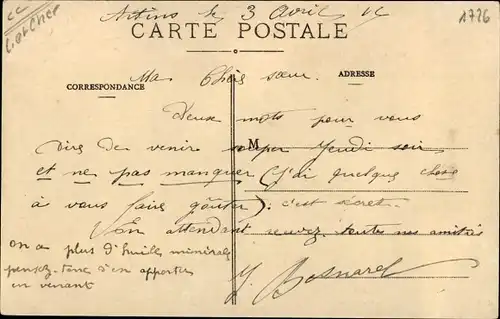 cc
Loir et Cher
1726
Artins le 3 Avril
CARTE POSTALE
CORRESPONDANCE
ADRESSE
Ma Chère sœur.
Deux mots pour vous
M
dire de venir souper Jeudi soir
et ne pas manquer (j'ai quelque chose
à vous faire goûter): c'est secret.
En attendant recevez toutes nos amitiés
on a plus d'huile minérale
pensez d'en apporter
en venant
Y. Besnard